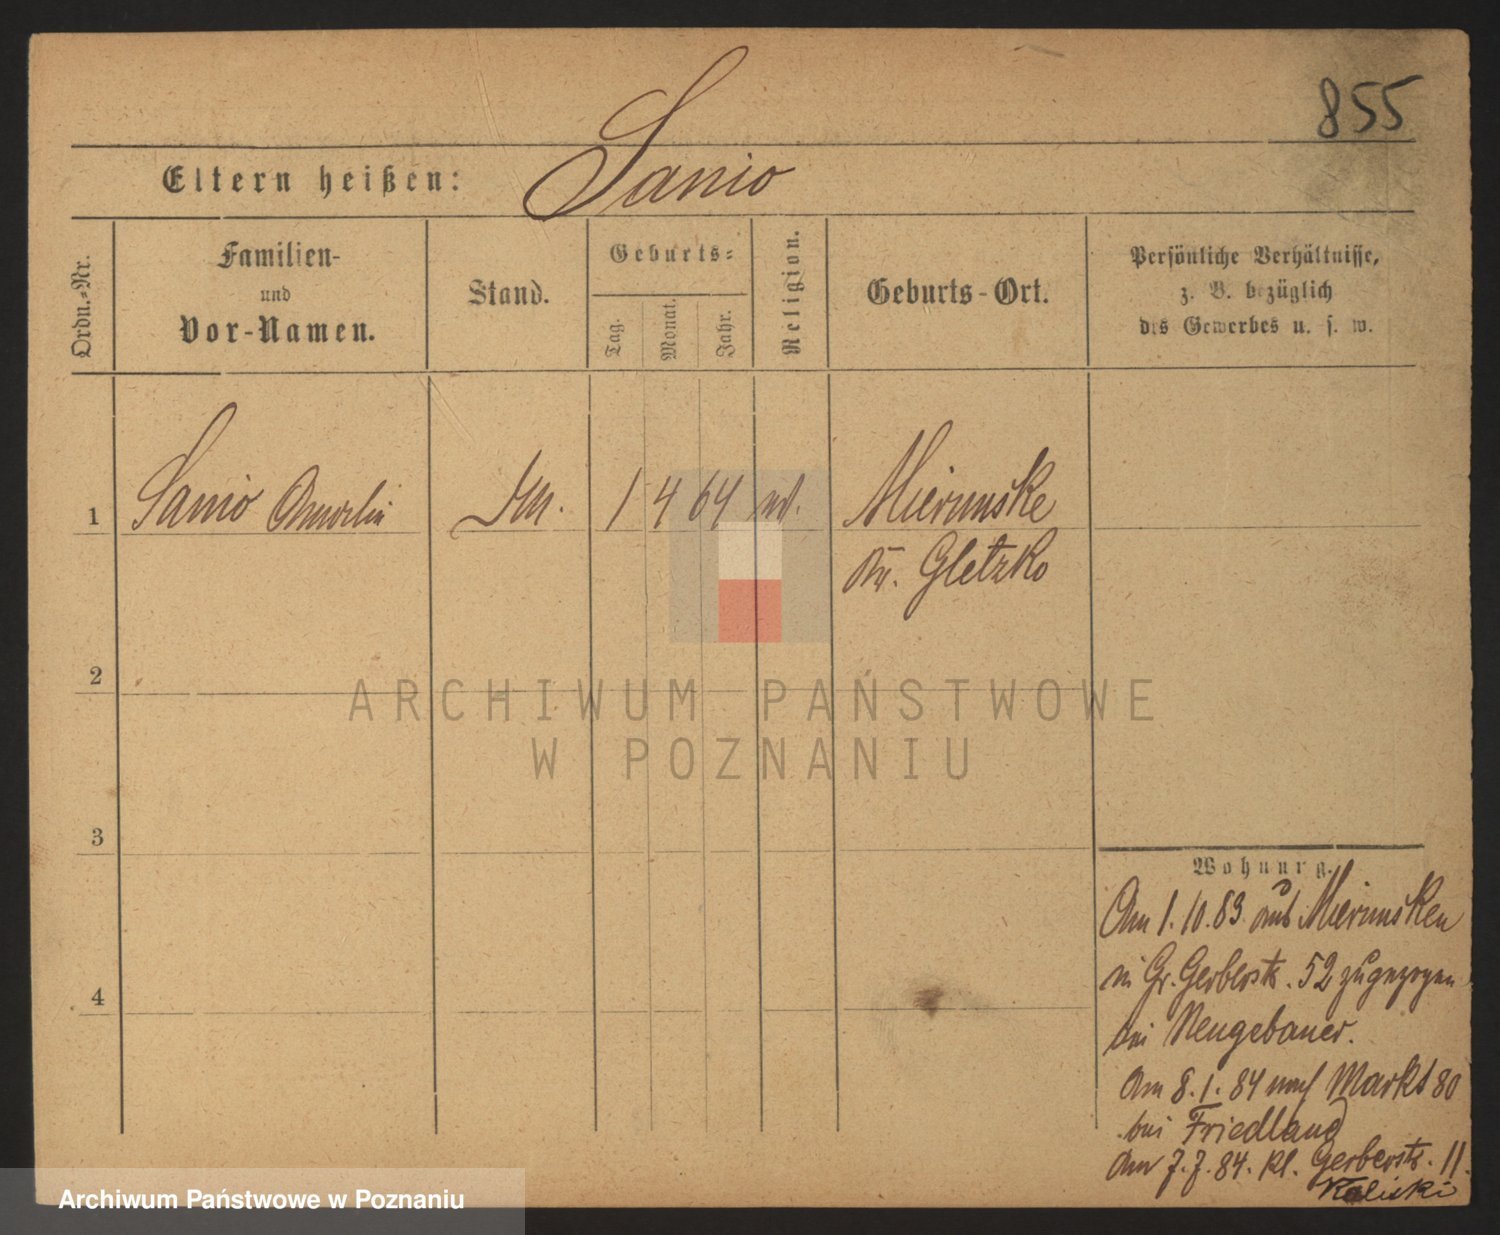 855
Eltern heißen: Sanio
Ordn.-Nr.
Familien-
und
Vor-Namen.
Stand.
Geburts-
Tag.
Monat.
Jahr.
Religion.
Geburts-Ort.
Persönliche Verhältnisse,
z. B. bezüglich
des Gewerbes u. s. w.
1 Sanio 1 4 64 Mierunske
Kr. Gletzko
2
3
4
Wohnung.
Am 1.10.83 aus Mierunsken
in Gr. Gerberstr. 52 zugezogen
bei Neugebauer.
Am 8.1.84 nach Markt 80
bei Friedland
Am 7.7.84. Kl. Gerberstr. 11.
Kaliski
ARCHIWUM PAŃSTWOWE
W POZNANIU
Archiwum Państwowe w Poznaniu